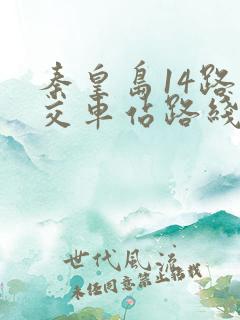 秦皇岛14路
交车占路线
世代风流
未经同意禁止转载